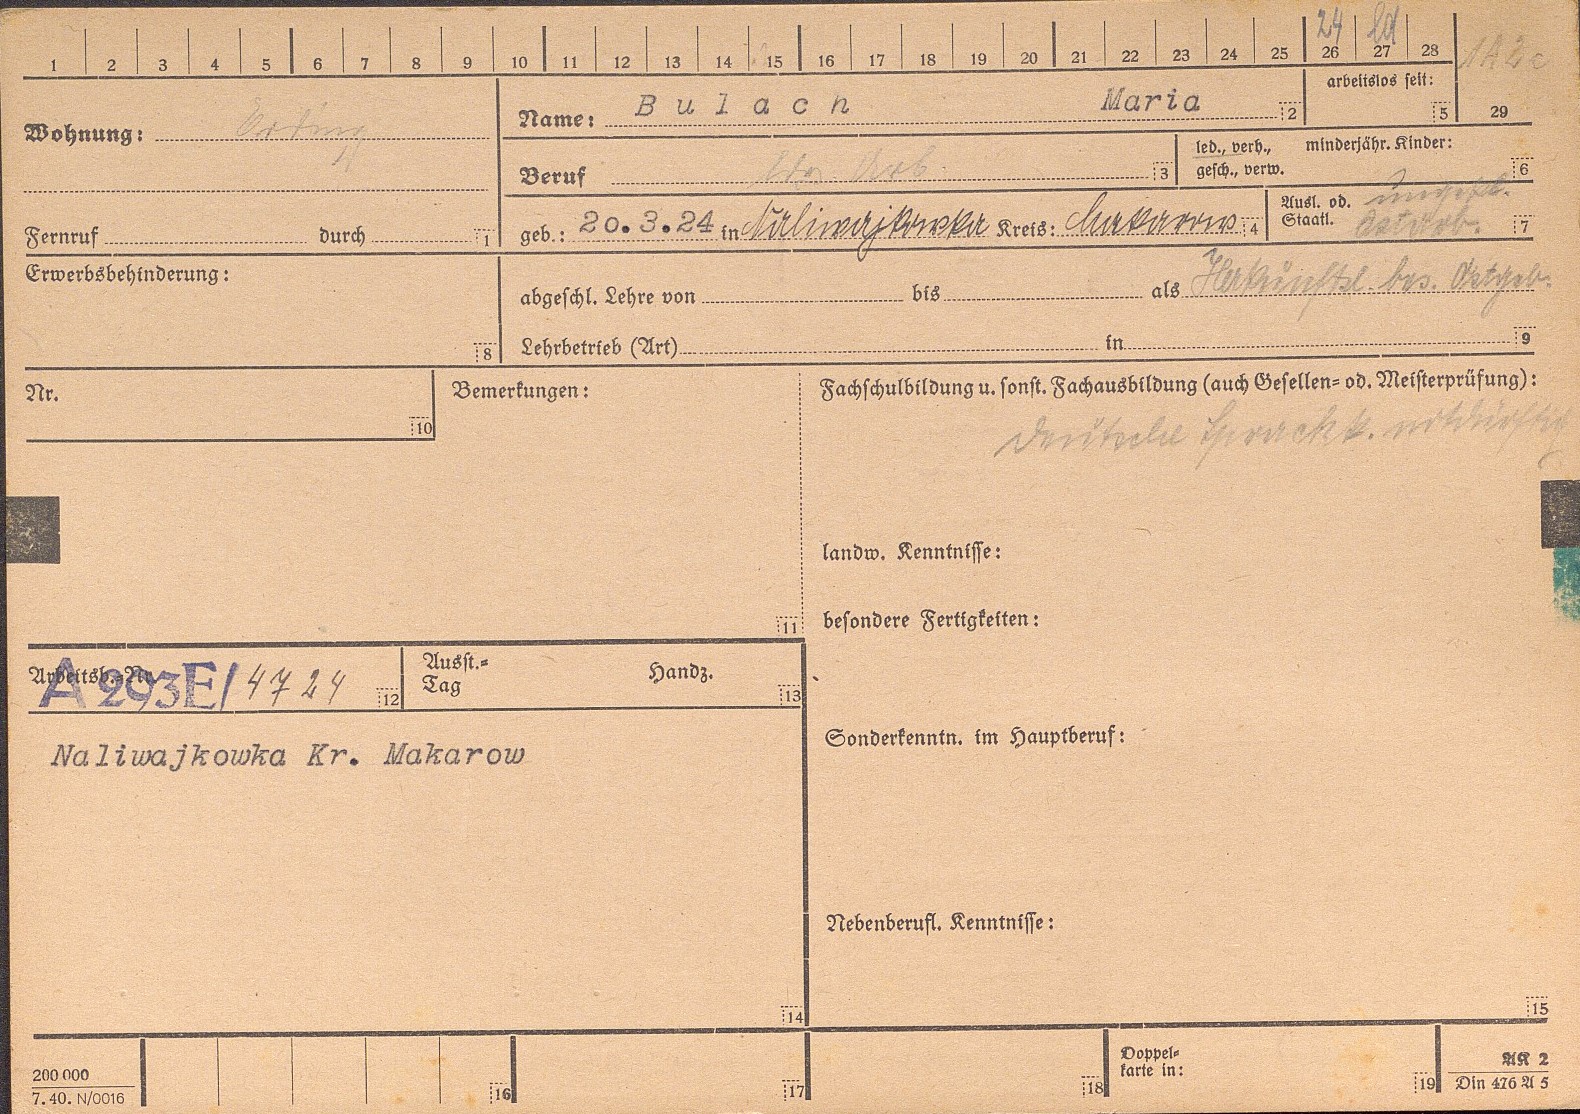 1 2 3 4 5 6 7 8 9 10 11 12 13 14 15 16 17 18 19 20 21 22 23 24 25 26 27 28
24 ld
29
Wohnung: Erding
Name: Bulach Maria 2
arbeitslos seit: 5
Beruf ldw. Arb. 3
led., verh., minderjähr. Kinder:
gesch., verw. 6
Fernruf durch 1
geb.: 20.3.24 in Naliwajkowka Kreis: Makarow 4
Ausl. od. ungekl.
Staatl. Ostarb. 7
Erwerbsbehinderung:
8
abgeschl. Lehre von bis als Herkunftsl. bes. Ostgeb.
Lehrbetrieb (Art) in 9
Nr.
10
Bemerkungen:
11
Fachschulbildung u. sonst. Fachausbildung (auch Gesellen- od. Meisterprüfung):
Deutsche Sprachk. notdürftig
landw. Kenntnisse:
besondere Fertigkeiten:
Arbeitsb.-Nr.
A 293E/ 4724 12
Ausst.- Handz.
Tag 13
Naliwajkowka Kr. Makarow
14
Sonderkenntn. im Hauptberuf:
Nebenberufl. Kenntnisse:
15
200 000
7. 40. N/0016
16
17
18
Doppel-
karte in: 19
AK 2
Din 476 A 5